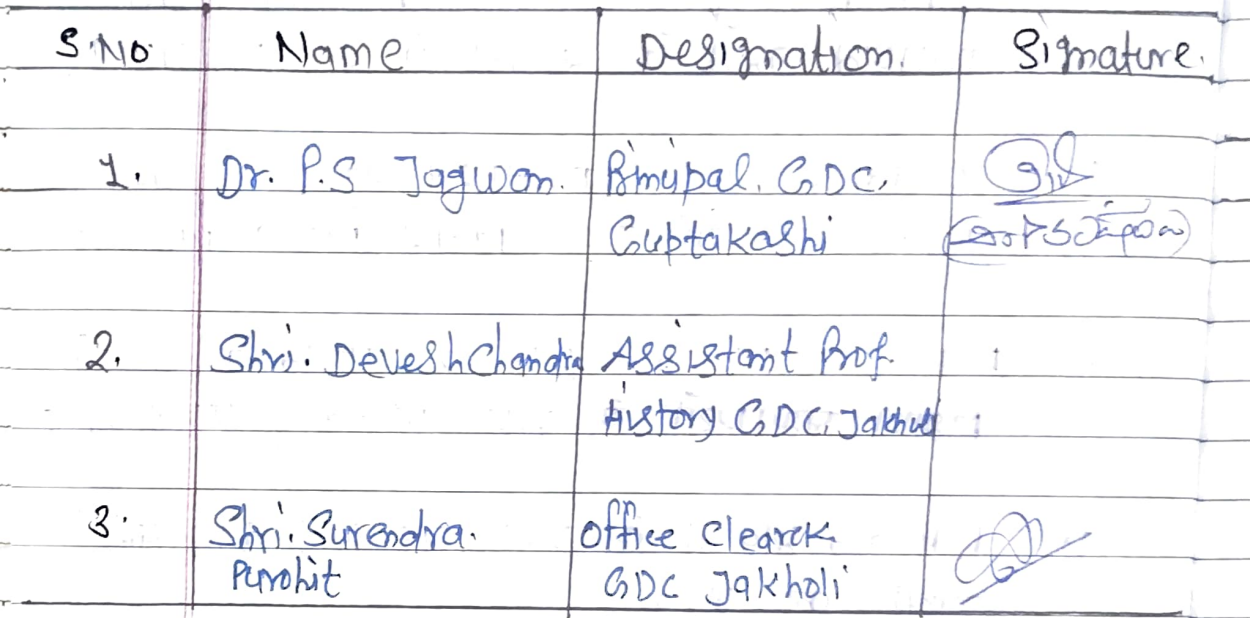 S.No. Name Designation. Signature.
1. Dr. P.S Jagwan. Principal. GDC,
Guptakashi
2. Shri. Devesh Chandra Assistant Prof.
History GDC, Jakholi
3. Shri. Surendra. Office Clearck
Purohit GDC Jakholi